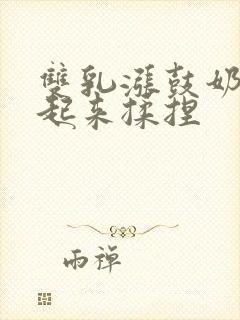 雙乳漲鼓奶
起來揉捏
雨禅